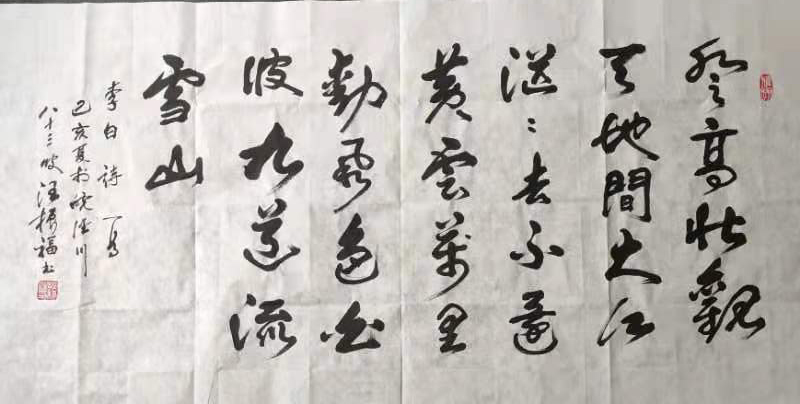 登高壯觀
天地間大江
茫〻去不還
黃雲萬里
動風色白
波九道流
雪山
李白詩一首
己亥夏於皖涇川
八十三叟汪福书